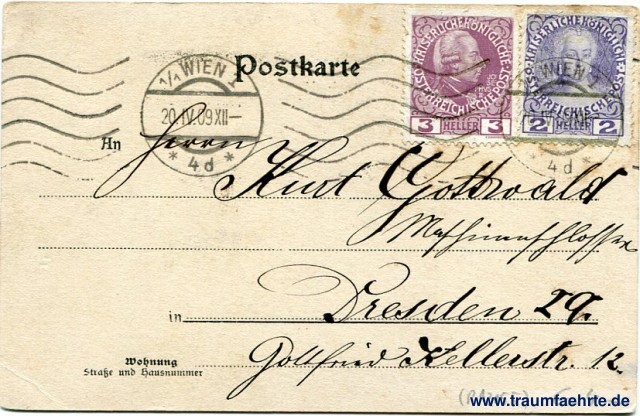 Postkarte
1/1 WIEN 1
20.IV.09 XII-
* 4d *
KAISERLICHE KÖNIGLICHE
ÖSTERREICHISCHE POST
3 HELLER 3
KAISERLICHE KÖNIGLICHE
ÖSTERREICHISCHE POST
2 HELLER 2
WIEN 1
4d *
An Herrn
Kurt Gottwald
Maschinenschlosser
in Dresden 29.
Wohnung
Straße und Hausnummer
Gottfried Kellerstr. 12.
www.traumfaehrte.de